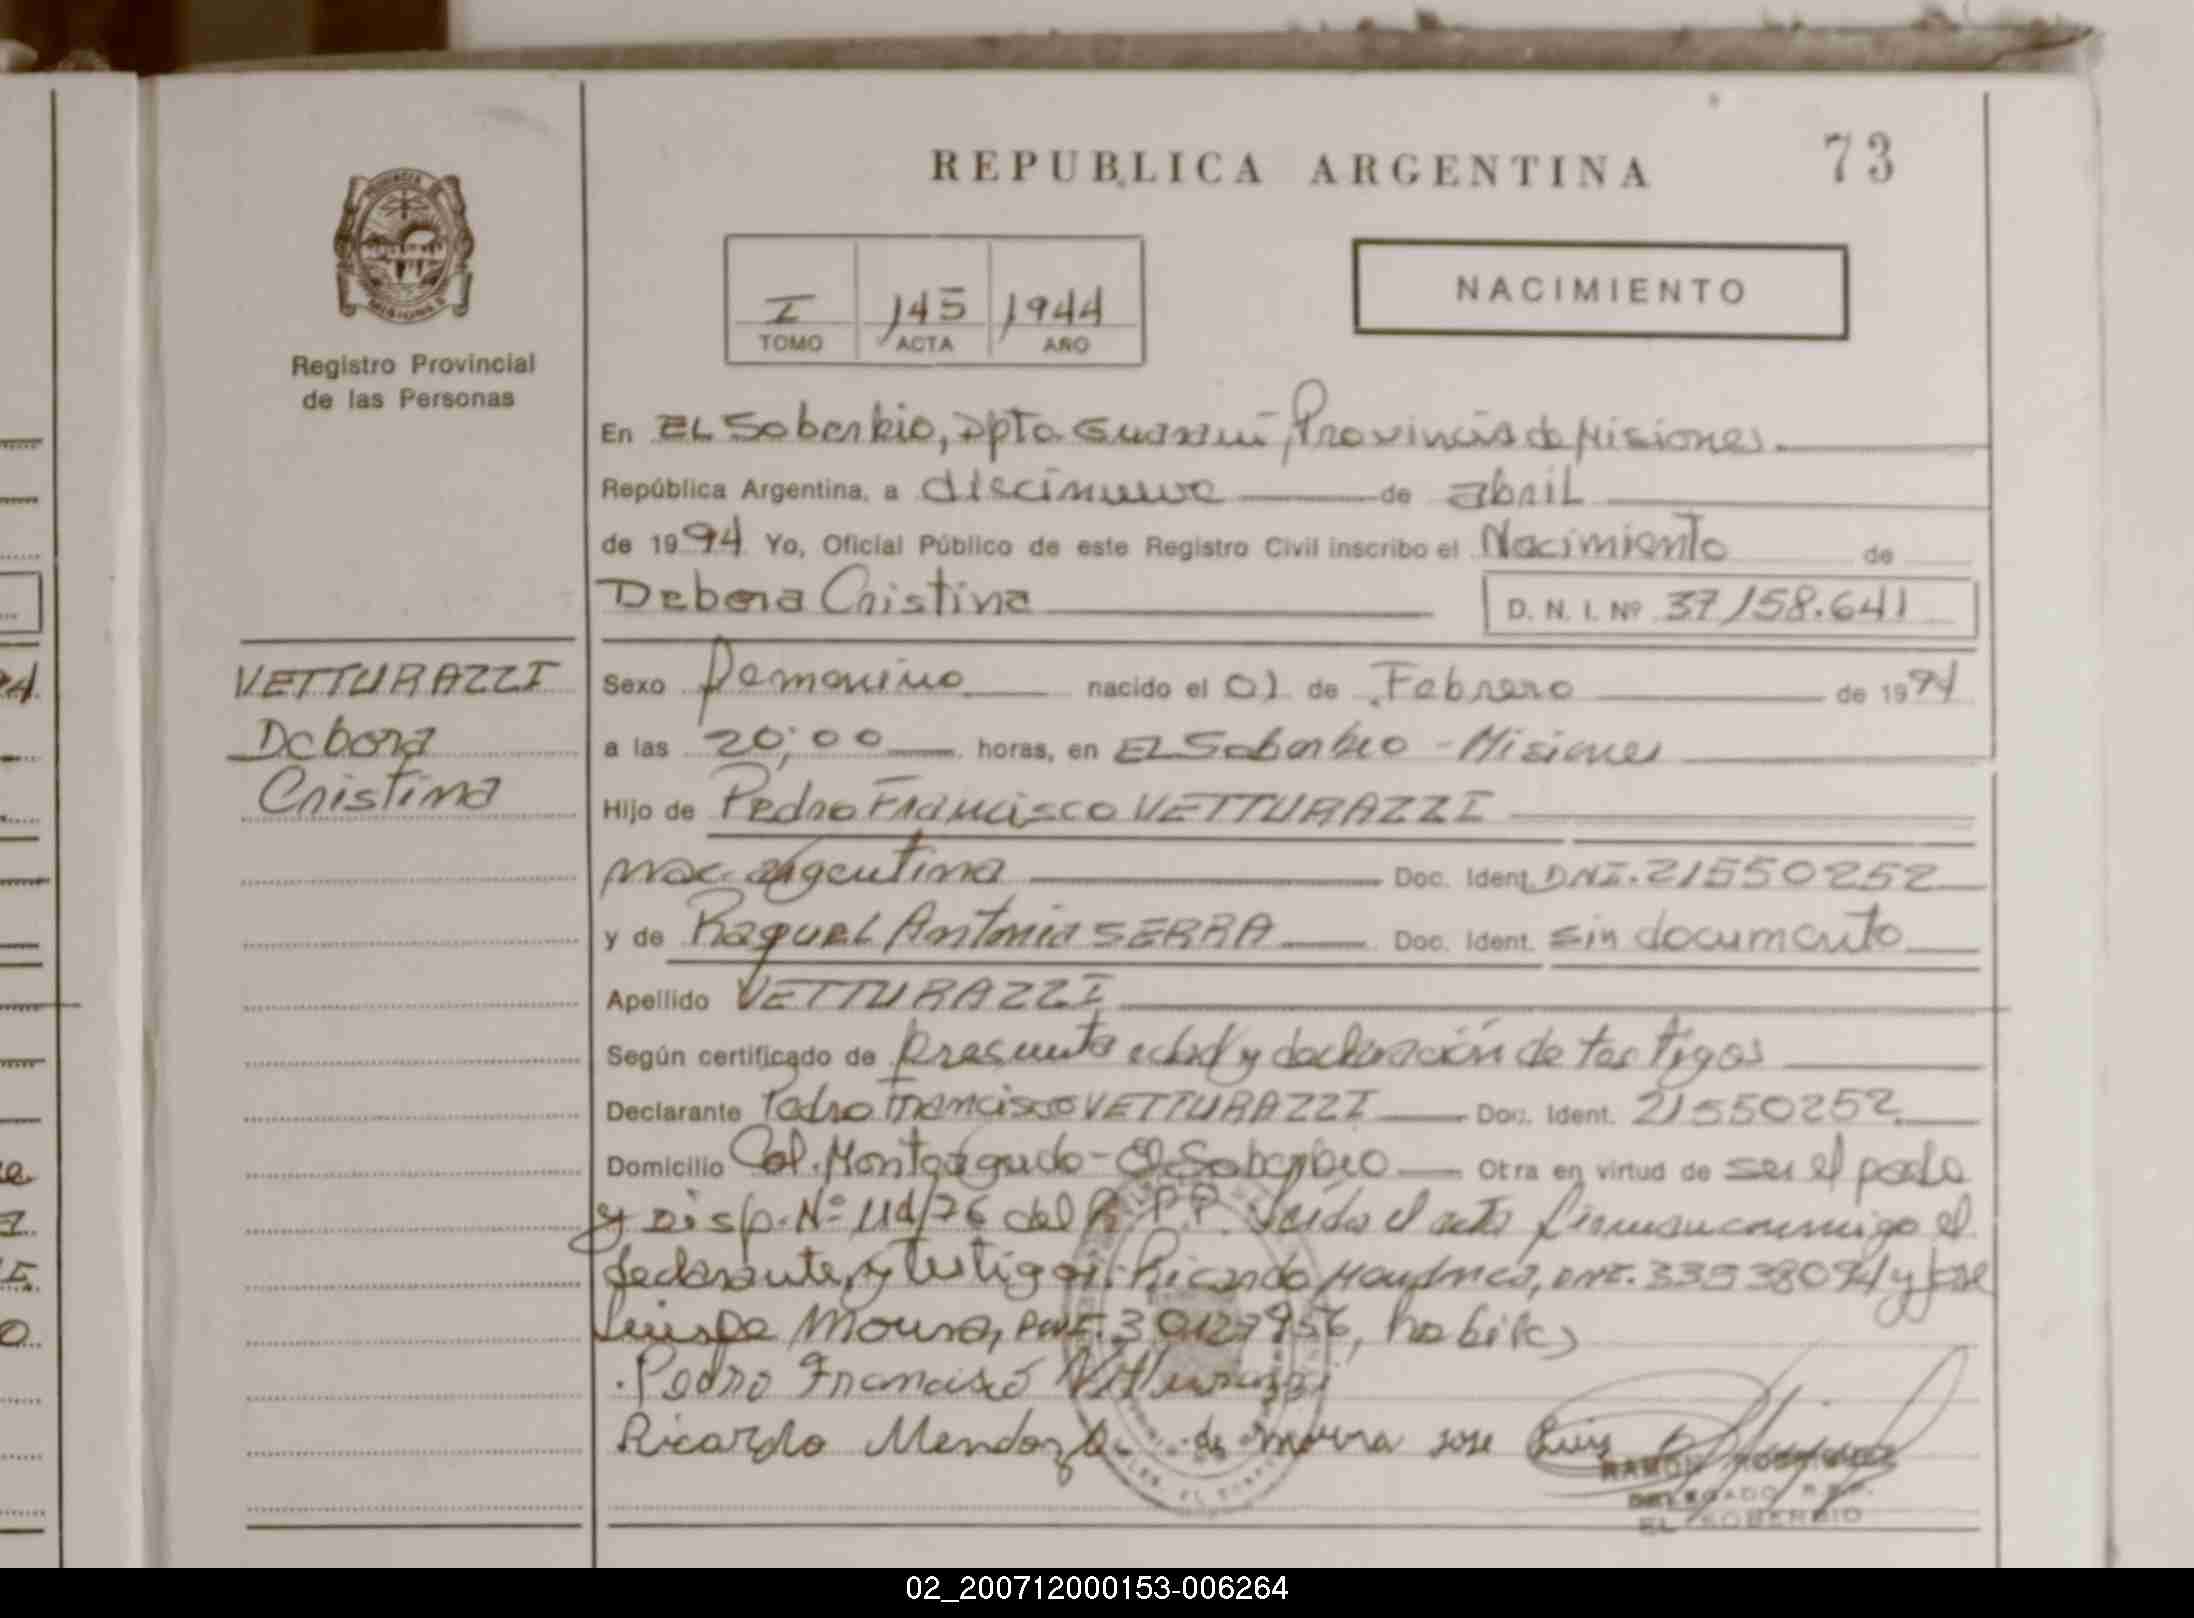 REPUBLICA ARGENTINA
73
PROVINCIA DE
MISIONES
Registro Provincial
de las Personas
I 145 1944
TOMO ACTA AÑO
NACIMIENTO
En EL Soberbio, Dpto. Guaraní, Provincia de Misiones.
República Argentina, a diecinueve de abril
de 1994 Yo, Oficial Público de este Registro Civil inscribo el Nacimiento de
Debora Cristina D. N. I. Nº 37158.641
VETTURAZZI
Debora
Cristina
Sexo Femenino nacido el 01 de Febrero de 1994
a las 20:00 horas, en EL Soberbio - Misiones
Hijo de Pedro Francisco VETTURAZZI
nac. argentina Doc. Ident. DNI. 21550252
y de Raquel Antonia SERRA Doc. Ident. sin documento
Apellido VETTURAZZI
Según certificado de presunta edad y declaración de testigos
Declarante Pedro Francisco VETTURAZZI Doc. Ident. 21550252
Domicilio Col. Monteagudo - El Soberbio Otra en virtud de ser el padre
y Disp. Nº 114/76 del R.P.P. Leída el acta firman conmigo el
declarante, y testigos: Ricardo DNI. 33538094 y José
Luis De Moura, DNI. 30127956, habiles
Pedro Francisco Vetturazzi
Ricardo Mendoza de moura jose Luis
RAMON RODRIGUEZ
DELEGADO R.P.P.
EL SOBERBIO
02_200712000153-006264